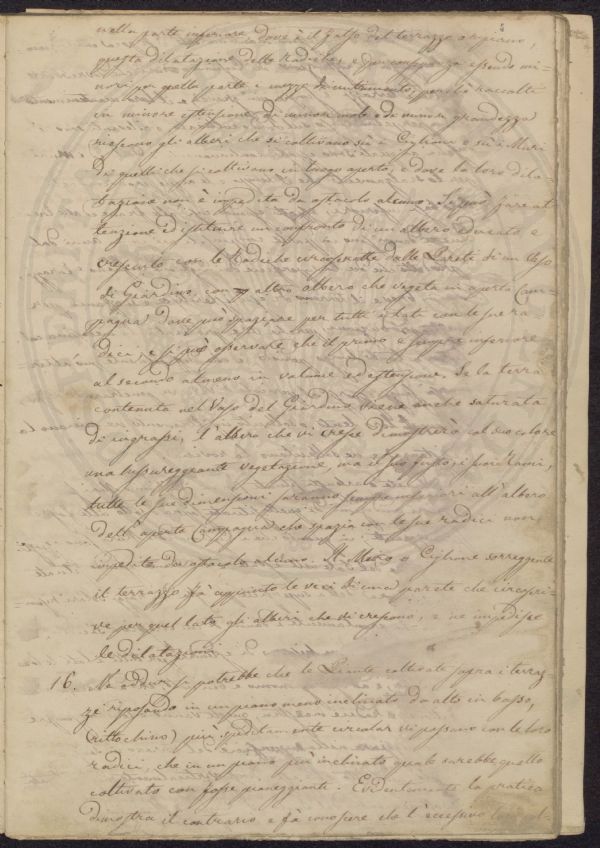 nella parte inferiore dove è il Galso del terrazzo
questa dilatazione delle Radiche, e per conseguenza essendo mi-
nori per quella parte i mezzi di nutrimento, perchè raccolti
in minore estensione, di minor mole e di minor grandezza
riescono gli alberi che si coltivano sia i Ciglioni e sui Muri
di quelli che si coltivano in luogo aperto, e dove la loro dila-
tazione non è impedita da ostacolo alcuno. Si può fare at-
tenzione ed istituire un confronto di un albero educato e
cresciuto con le Radiche circoscritte dalle Pareti di un Vaso
di Giardino con altro albero che vegeta in aperta Cam-
pagna dove può spaziare per tutti i lati con le sue ra
dici, e si può osservare che il primo è sempre inferiore
al secondo almeno in volume ed estensione. Se la terra
contenuta nel Vaso del Giardino viene anche saturata
di ingrassi, l'albero che vi cresce dimostrerà col suo colore
una lussureggiante vegetazione, ma il suo fusto, i suoi Rami,
tutte le sue dimensioni saranno sempre inferiori all'albero
dell'aperta Campagna che spazia con le sue radici non
impedito da ostacolo alcuno. Il Muro o Ciglione sorreggente
il terrazzo fà appunto le veci di una parete che circoscri-
ve per quel lato gli alberi che vi crescono, e ne impedisce
le dilatazioni.
16. Nè addur si potrebbe che le Piante coltivate sopra i terraz-
zi riposando in un piano meno inclinato da alto in basso,
(rittochino) più speditamente circolar vi possano con le loro
radici, che in un piano più inclinato quale sarebbe quello
coltivato con fosse pianeggianti. Evidentemente la pratica
dimostra il contrario e fà conoscere che l'eccessivo